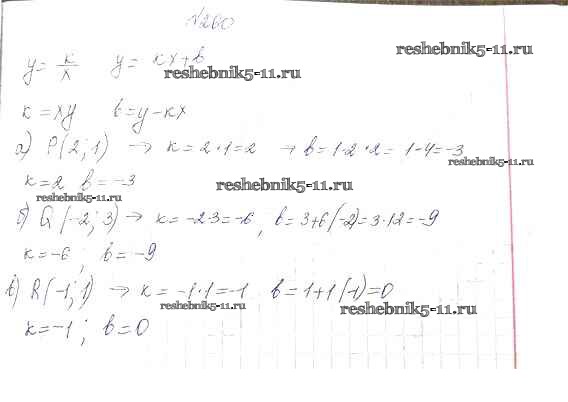 №260
y = k/x   y = kx+b
k = xy   b = y-kx
а) P(2; 1) → k = 2·1=2 → b = 1-2·2= 1-4=-3
k=2 b=-3
б) Q(-2; 3) → k = -2·3=-6, b = 3+6(-2)=3·12=-9
k=-6, b=-9
в) R(-1; 1) → k = -1·1=-1 b = 1+1(-1)=0
k=-1; b=0
reshebnik5-11.ru
reshebnik5-11.ru
reshebnik5-11.ru
reshebnik5-11.ru
reshebnik5-11.ru
reshebnik5-11.ru
reshebnik5-11.ru